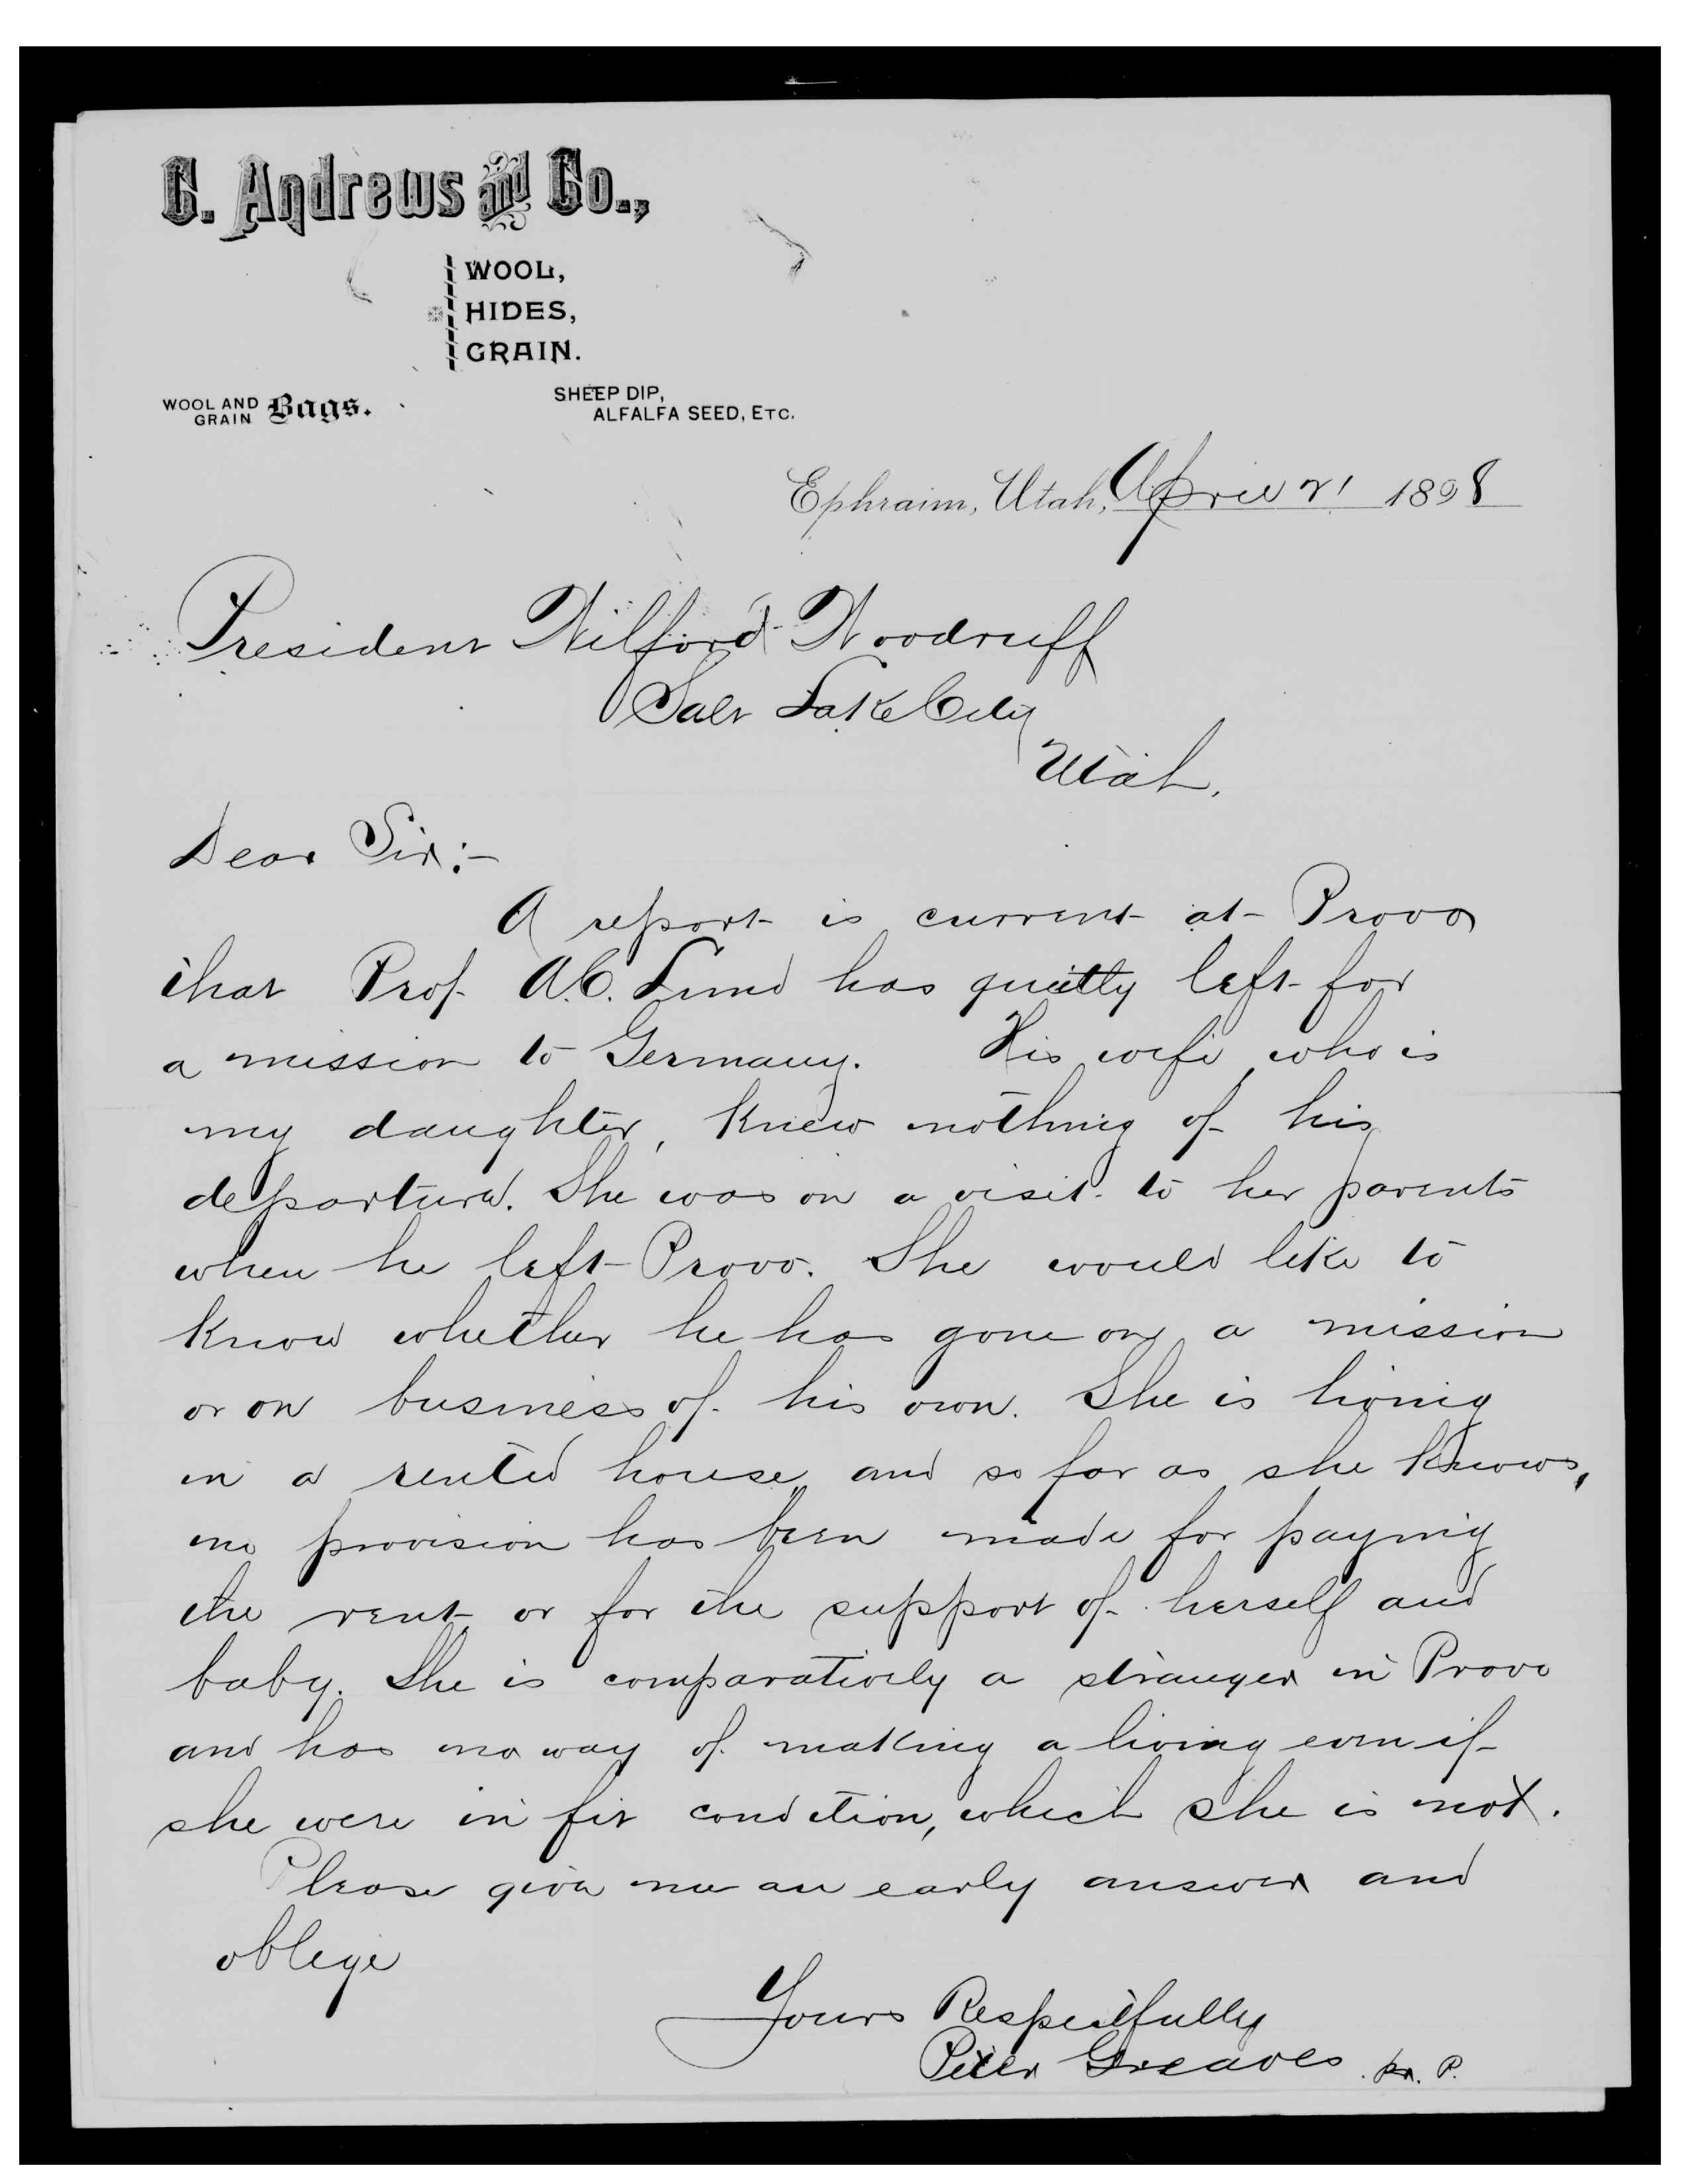 C. Andrews and Co.,
WOOL,
HIDES,
GRAIN.
WOOL AND GRAIN Bags.
SHEEP DIP,
ALFALFA SEED, ETC.
Ephraim, Utah, April 21 1898
President Wilford Woodruff
Salt Lake City
Utah.
Dear Sir:-
A report is current at Provo
that Prof. A.C. Lund has quietly left for
a mission to Germany. His wife, who is
my daughter, knew nothing of his
departure. She was on a visit to her parents
when he left Provo. She would like to
know whether he has gone on a mission
or on business of his own. She is living
in a rented house, and so far as she knows,
no provision has been made for paying
the rent or for the support of herself and
baby. She is comparatively a stranger in Provo
and has no way of making a living even if
she were in fit condition, which she is not.
Please give me an early answer and
oblige
Yours Respectfully
Peter Greaves